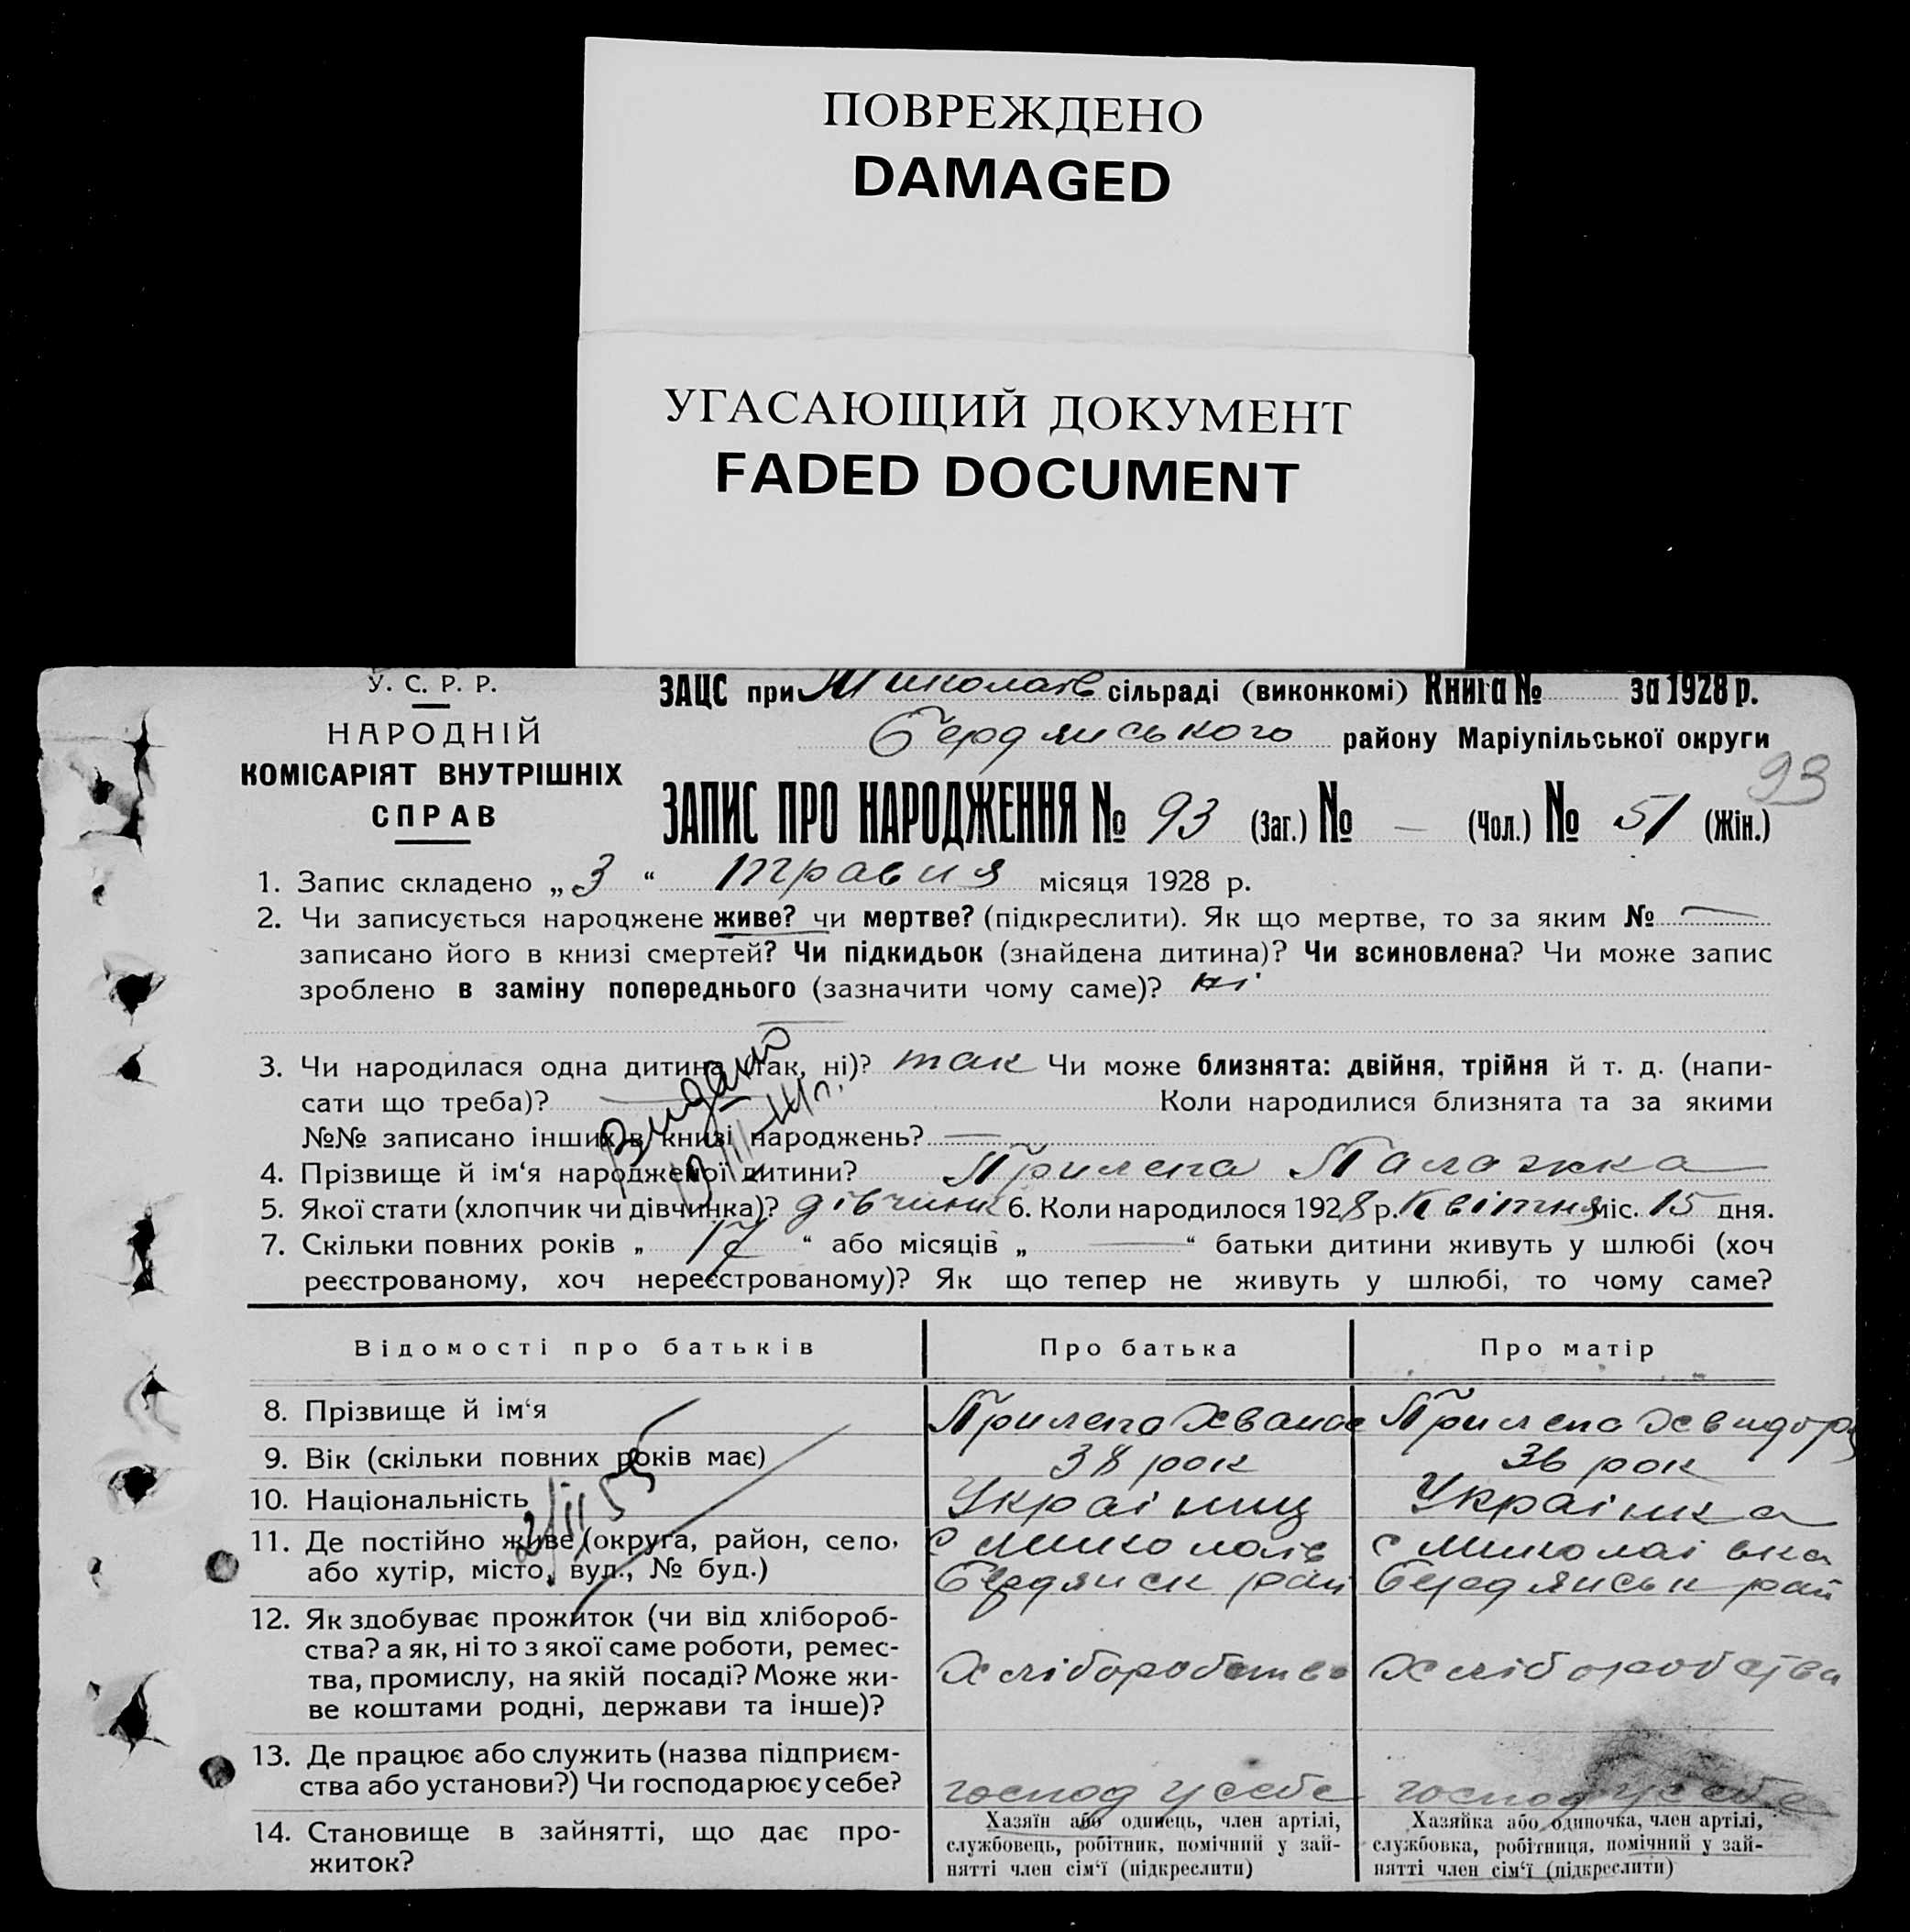 ПОВРЕЖДЕНО
DAMAGED
УГАСАЮЩИЙ ДОКУМЕНТ
FADED DOCUMENT
У. С. Р. Р.
НАРОДНІЙ
КОМІСАРІЯТ ВНУТРІШНІХ
СПРАВ
ЗАЦС при Миколаїв сільраді (виконкомі) Книга № за 1928 р.
Бердянського району Маріупільської округи
93
ЗАПИС ПРО НАРОДЖЕННЯ № 93 (Заг.) № — (Чол.) № 51 (Жін.)
1. Запис складено „3“ травня місяця 1928 р.
2. Чи записується народжене живе? чи мертве? (підкреслити). Як що мертве, то за яким № —
записано його в книзі смертей? Чи підкидьок (знайдена дитина)? Чи всиновлена? Чи може запис
зроблено в заміну попереднього (зазначити чому саме)? ні
3. Чи народилася одна дитина (так, ні)? так Чи може близнята: двійня, трійня й т. д. (напи-
сати що треба)? — Коли народилися близнята та за якими
№№ записано інших в книзі народжень? —
Видано
4. Прізвище й ім‘я народженої дитини? Прилепа Палажка
5. Якої стати (хлопчик чи дівчинка)? дівчинк 6. Коли народилося 1928 р. Квітня міс. 15 дня.
7. Скільки повних років „ 17 “ або місяців „ — “ батьки дитини живуть у шлюбі (хоч
реєстрованому, хоч нереєстрованому)? Як що тепер не живуть у шлюбі, то чому саме?
Відомості про батьків Про батька Про матір
8. Прізвище й ім‘я Прилепа Хванас Прилепа Хевидора
9. Вік (скільки повних років має) 38 рок 36 рок
10. Національність Украінец Украінка
11. Де постійно живе (округа, район, село, с Миколаїв с Миколаівка
або хутір, місто, вул., № буд.) Бердянск рай Бердянськ рай
2/II 55
12. Як здобуває прожиток (чи від хлібороб-
ства? а як, ні то з якої саме роботи, ремес-
тва, промислу, на якій посаді? Може жи- Хліборобство Хліборобства
ве коштами родні, держави та інше)?
13. Де працює або служить (назва підприєм-
ства або установи?) Чи господарює у себе? господ у себе господ у себе
14. Становище в зайнятті, що дає про-
житок?
Хазяїн або одинець, член артілі,
службовець, робітник, помічний у зай-
нятті член сім‘ї (підкреслити)
Хазяйка або одиночка, член артілі,
службовка, робітниця, помічний у зай-
нятті член сім‘ї (підкреслити)